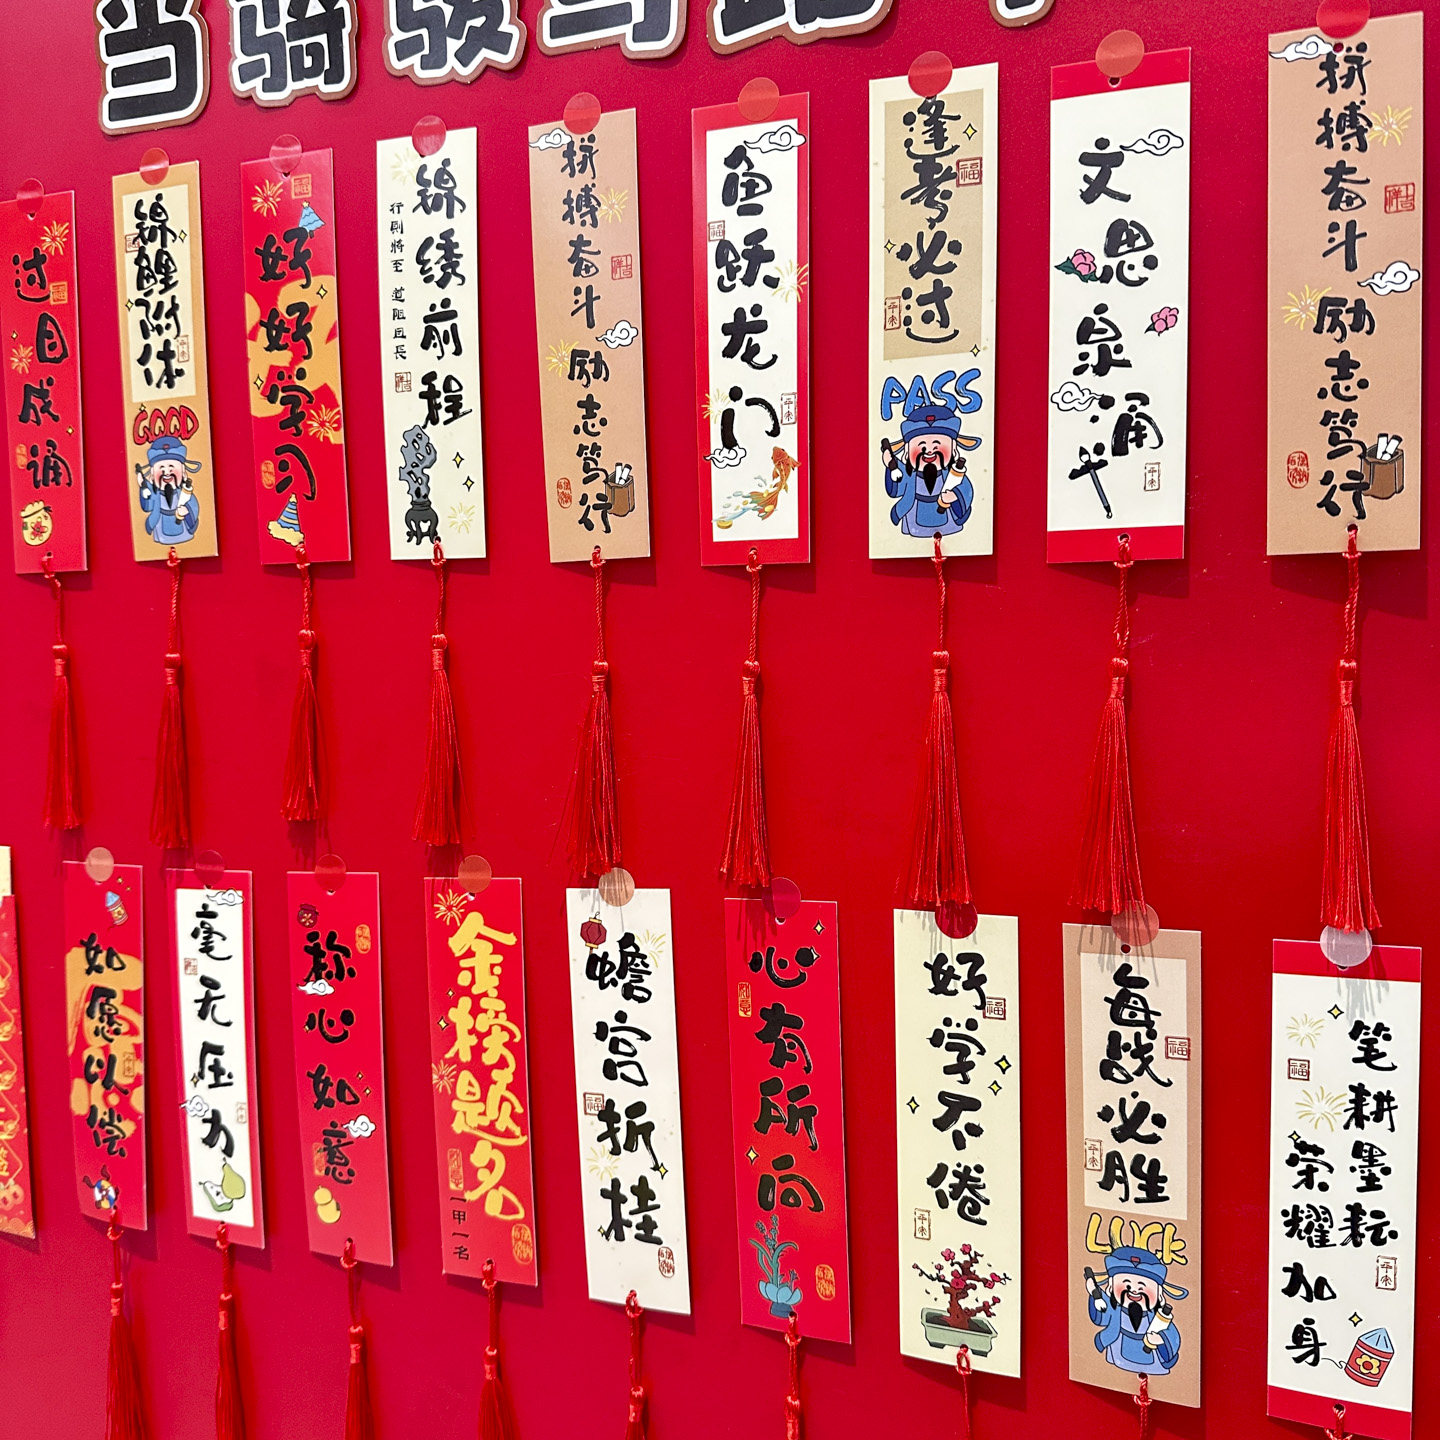 当骑骏马踏
过目成诵
锦鲤附体
GOOD
好好学习
锦绣前程
行则将至 道阻且长
拼搏奋斗 励志笃行
鱼跃龙门
逢考必过
PASS
文思泉涌
拼搏奋斗 励志笃行
如愿以偿
毫无压力
称心如意
金榜题名
一甲一名
蟾宫折桂
心有所向
好学不倦
每战必胜
LUCK
笔耕墨耘
荣耀加身